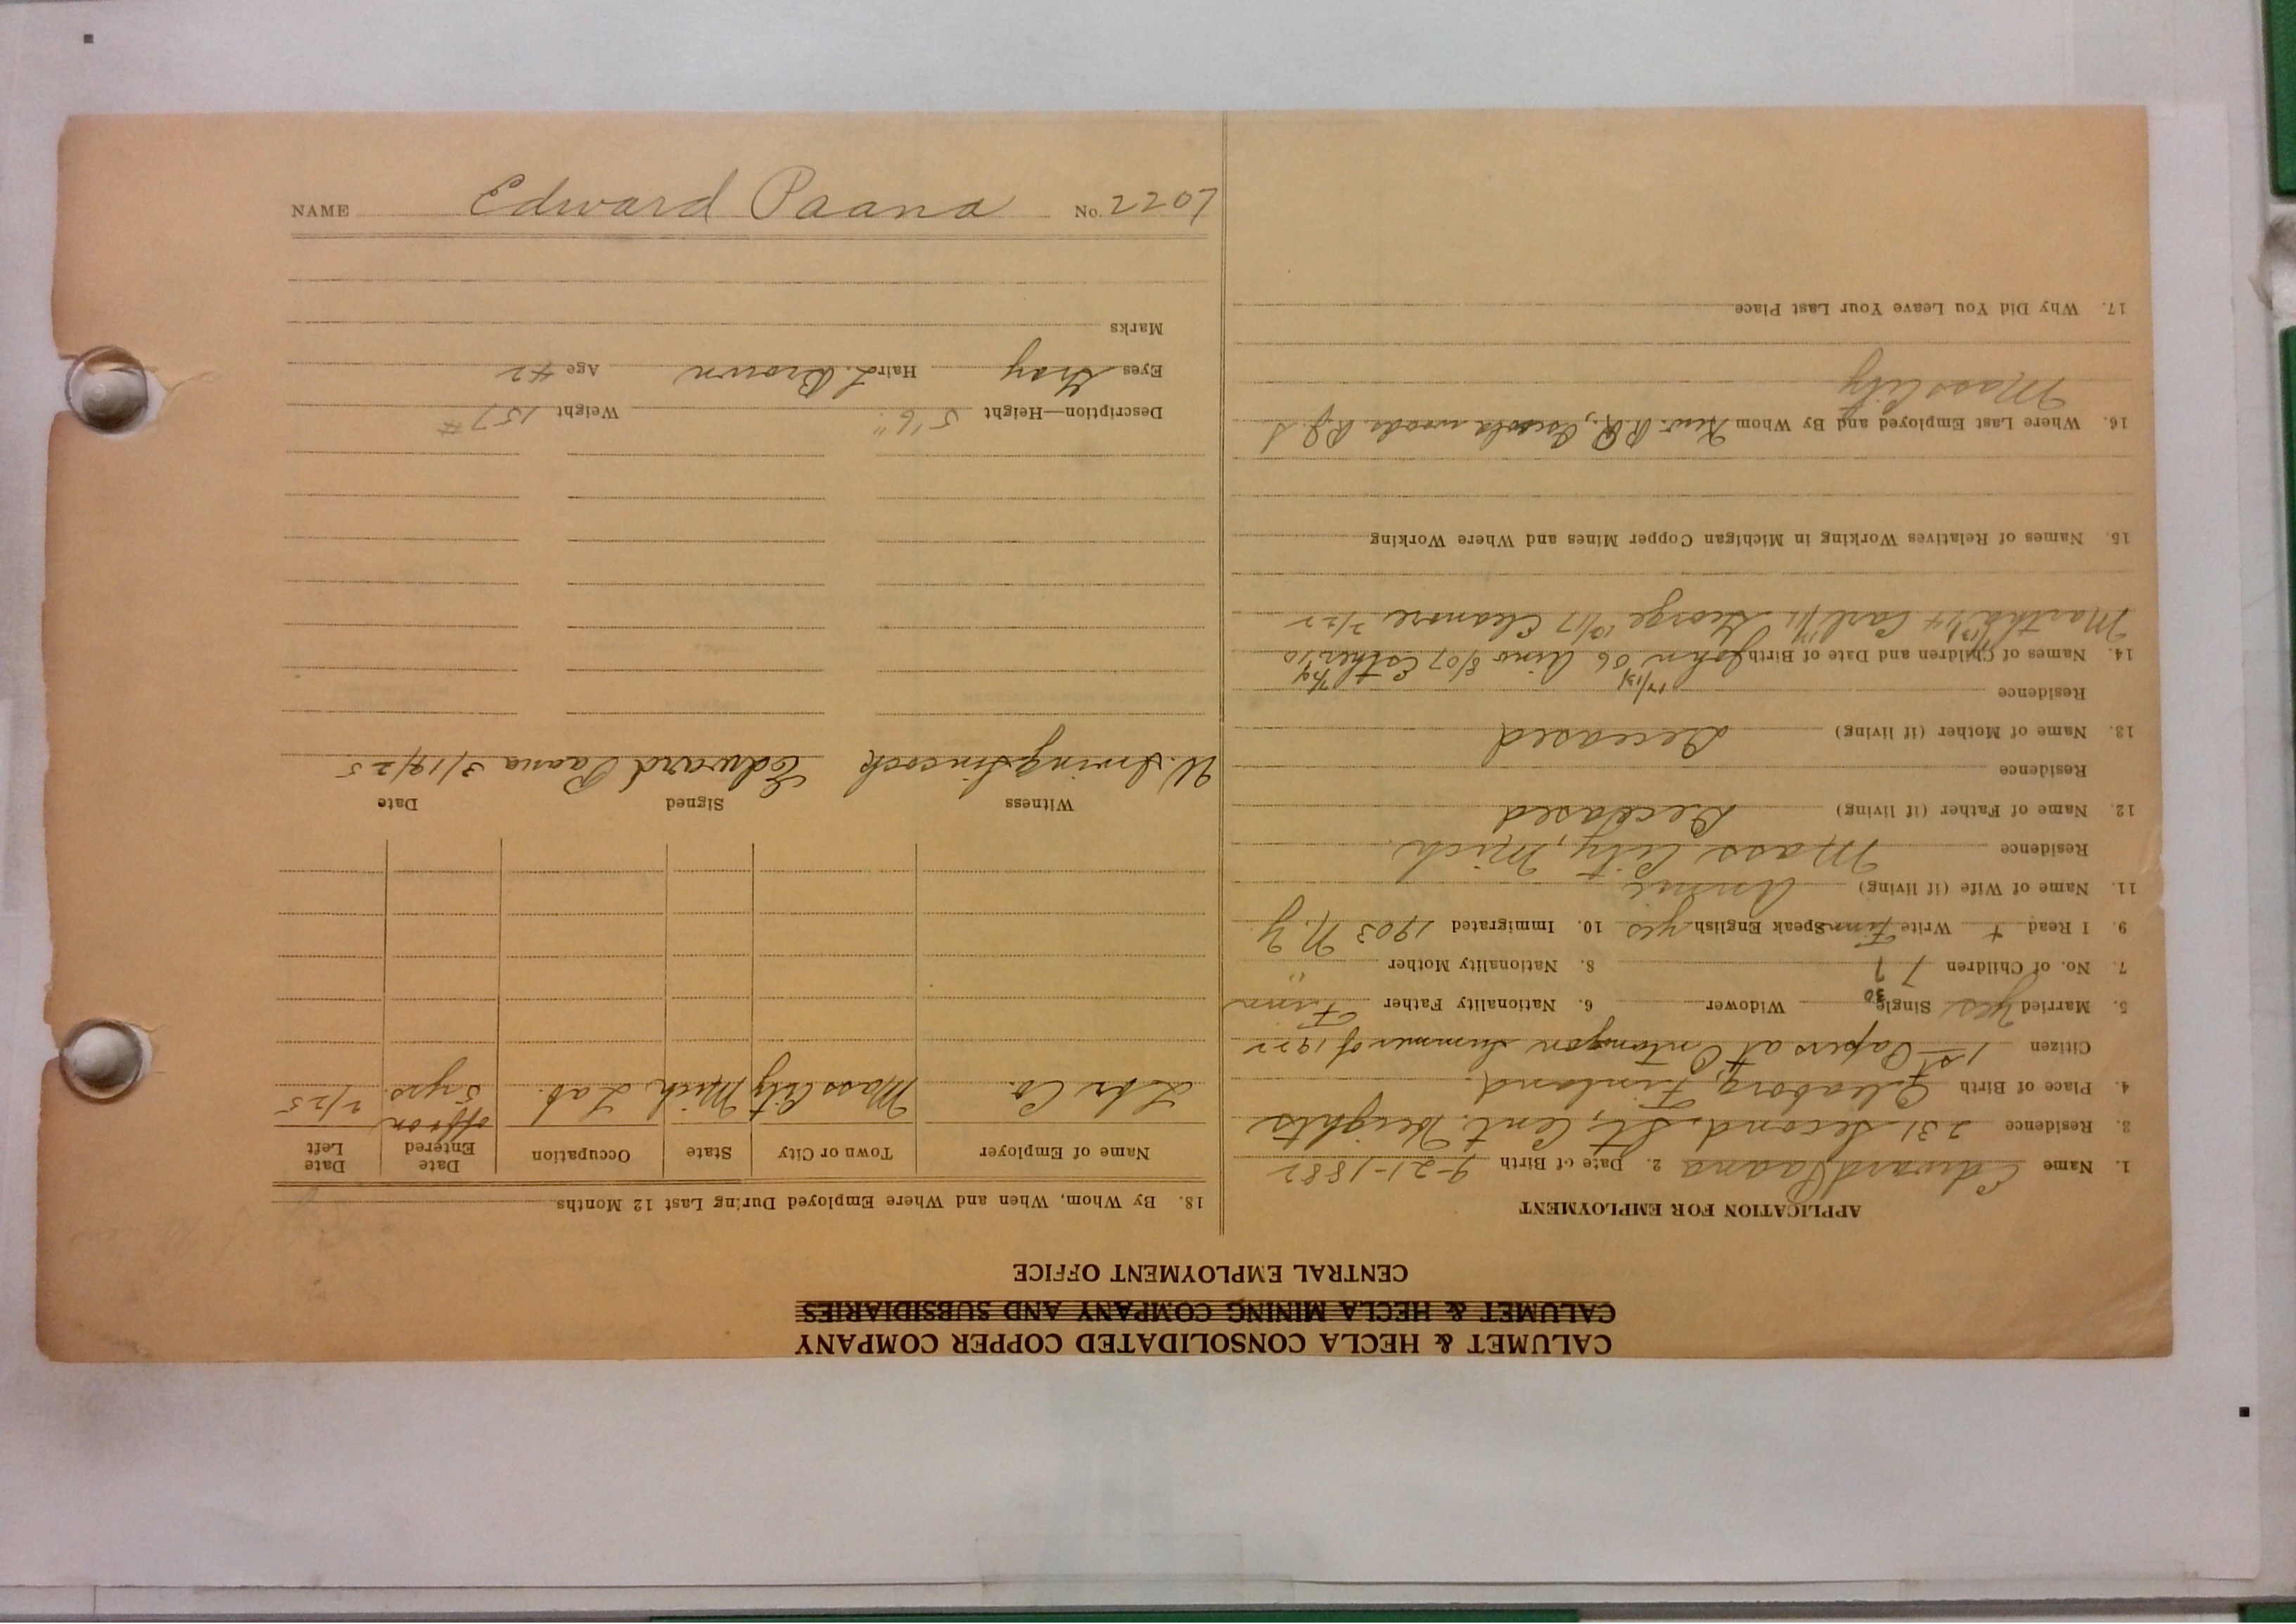 CALUMET & HECLA CONSOLIDATED COPPER COMPANY
CALUMET & HECLA MINING COMPANY AND SUBSIDIARIES
CENTRAL EMPLOYMENT OFFICE
APPLICATION FOR EMPLOYMENT
1. Name Edward Paana 2. Date of Birth 9-21-1882
3. Residence 231 Second St, Cent. Heights
4. Place of Birth Uleaborg, Finland.
Citizen 1st Papers at Ontonagon Summer of 1922
5. Married Yes Single 30 Widower 6. Nationality Father Finn
7. No. of Children 7 8. Nationality Mother "
9. I Read + Write Finn Speak English yes 10. Immigrated 1903 N.Y.
11. Name of Wife (if living) Annie
Residence Mass City, Mich.
12. Name of Father (if living) Deceased
Residence
13. Name of Mother (if living) Deceased
Residence
14. Names of Children and Date of Birth John 06 Aino 8/07 Esther 10
Martha Carl George 10/17 Eleanore 2/22
15. Names of Relatives Working in Michigan Copper Mines and Where Working
16. Where Last Employed and By Whom Kew. R.R., Osceola woods
Mass City
17. Why Did You Leave Your Last Place
18. By Whom, When and Where Employed During Last 12 Months
Name of Employer Town or City State Occupation Date Entered Date Left
Lbr Co. Mass City Mich Lab. off + on 5 yrs. 2/25
Witness Signed Date
W. Irving Hincock Edward Paana 3/19/25
Description—Height 5'6" Weight 157#
Eyes Gray Hair L. Brown Age 42
Marks
NAME Edward Paana No. 2207